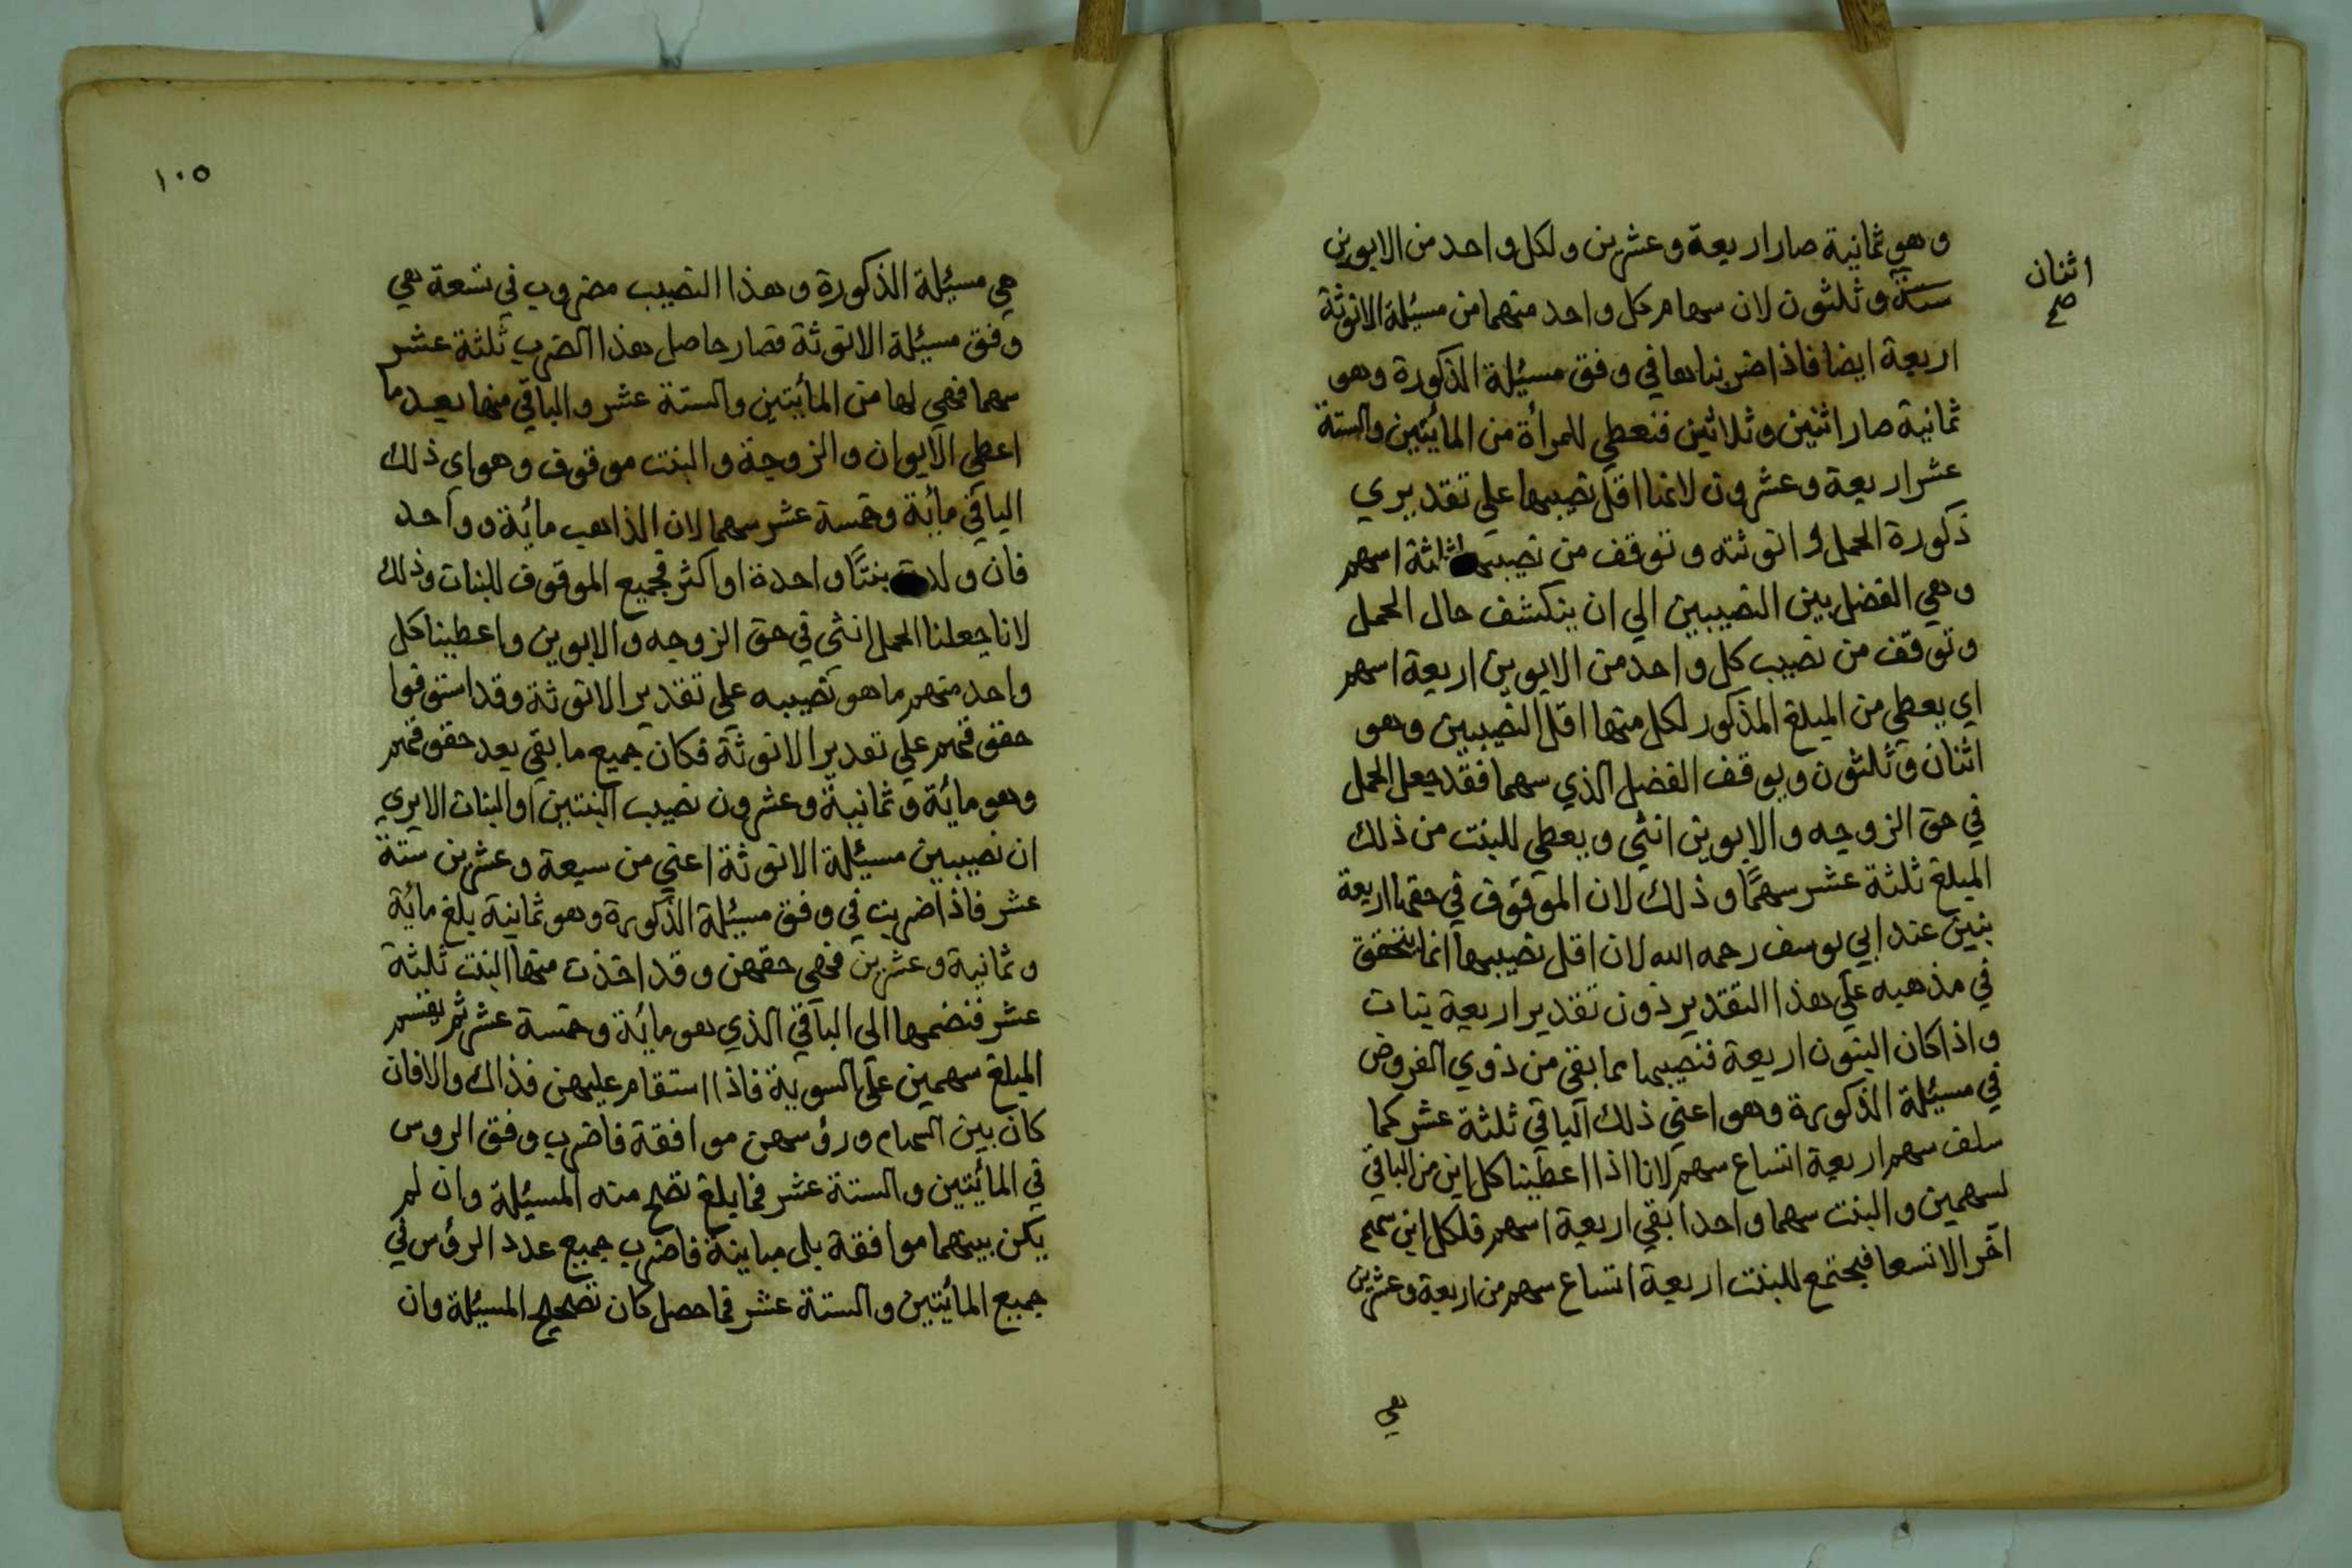 وهو ثمانية صار اربعة وعشرين ولكل واحد من الابوين
ستة وثلثون لان سهام كل واحد منهما من مسئلة الانوثة
اثنان
صح
اربعة ايضا فاذا ضربناها في وفق مسئلة الذكورة وهو
ثمانية صار اثنين وثلاثين فنعطي للمرأة من المائتين والستة
عشر اربعة وعشرون لانها اقل نصيبها علي تقديري
ذكورة الحمل وانوثته ونوقف من نصيبها ثلثة اسهم
وهي الفضل بين النصيبين الي ان ينكشف حال الحمل
ونوقف من نصيب كل واحد من الابوين اربعة اسهم
اي يعطي من المبلغ المذكور لكل منهما اقل النصيبين وهو
اثنان وثلثون ويوقف الفضل الذي سهما فقد جعل الحمل
في حق الزوجه والابوين انثي ويعطي للبنت من ذلك
المبلغ ثلثة عشر سهمًا وذلك لان الموقوف في حقها اربعة
بنين عند ابي يوسف رحمه الله لان اقل نصيبها انما يتحقق
في مذهبه علي هذا التقدير دون تقدير اربعة بنات
واذا كان البنون اربعة فنصيبها مما بقي من ذوي الفروض
في مسئلة الذكورة وهو اعني ذلك الباقي ثلثة عشر كما
سلف سهم اربعة اتساع سهم لانا اذا اعطينا كل ابن من الباقي
لسهمين والبنت سهما واحدا بقي اربعة اسهم فلكل ابن سهم
آخر الاتسعا فيجتمع للبنت اربعة اتساع سهم من اربعة وعشرين
هي
١٠٥
هي مسئلة الذكورة وهذا النصيب مضروب في تسعة هي
وفق مسئلة الانوثة فصار حاصل هذا الضرب ثلثة عشر
سهما فهي لها من المائتين والستة عشر والباقي منها بعد ما
اعطي الابوان والزوجة والبنت موقوف وهو اي ذلك
الباقي مائة وخمسة عشر سهما لان الذاهب مائة وواحد
فان ولدت بنتًا واحدة او اكثر فجميع الموقوف للبنات وذلك
لانا جعلنا الحمل انثي في حق الزوجه والابوين واعطينا كل
واحد منهم ما هو نصيبه علي تقدير الانوثة وقد استوفوا
حقوقهم علي تقدير الانوثة فكان جميع ما بقي بعد حقوقهم
وهو مائة وثمانية وعشرون نصيب البنتين او البنات الايري
ان نصيبين مسئلة الانوثة اعني من سبعة وعشرين ستة
عشر فاذا ضربت في وفق مسئلة الذكورة وهو ثمانية بلغ مائة
وثمانية وعشرين فهي حقهن وقد اخذت منها البنت ثلثة
عشر فنضمها الى الباقي الذي هو مائة وخمسة عشر ثم نقسم
المبلغ سهمين علي السوية فاذا استقام عليهن فذاك والا فان
كان بين السهام ورؤسهن موافقة فاضرب وفق الروس
في المائتين والستة عشر فما بلغ تصح منه المسئلة وان لم
يكن بينهما موافقة بل مباينة فاضرب جميع عدد الرؤس في
جميع المائتين والستة عشر فما حصل كان تصحيح المسئلة وان